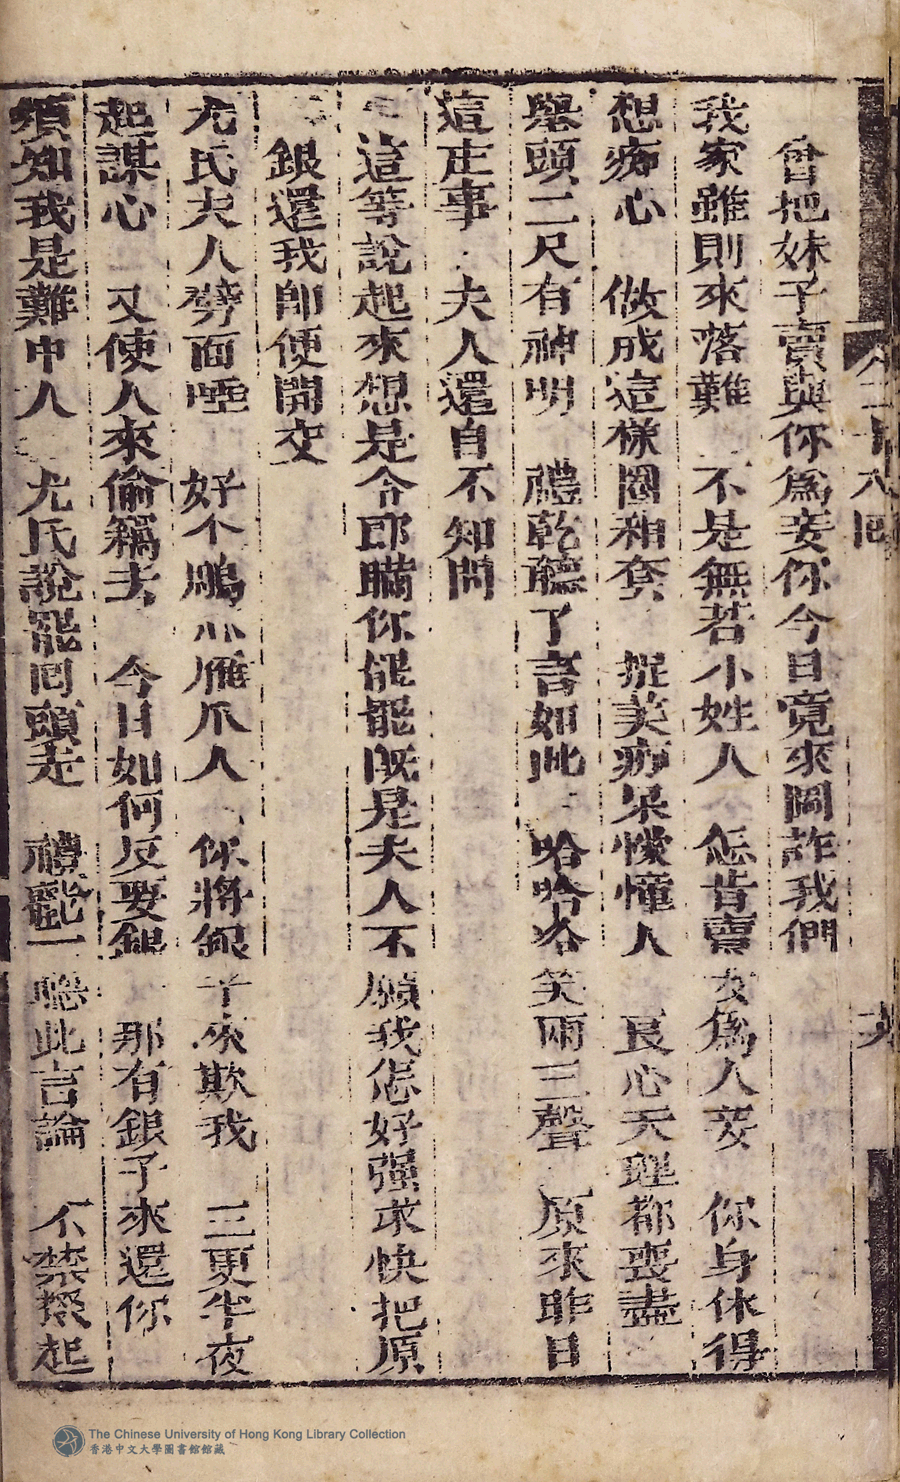 曾把妹子賣與你爲妾你今日竟來圖詐我們
我家雖則來落難 不是無若小姓人 怎肯賣女爲人妾 你身休得
想痴心 做成這樣圈和套 捉笑痴呆懞憧人 良心天理都喪盡
舉頭二尺有神明 禮乾聽了言如此 哈哈哈笑兩三聲 原來昨日
這庄事 夫人還自不知問
這等說起來想是令郎瞞你罷罷既是夫人不願我怎好强求快把原
銀還我即便開交
尤氏夫人劈面啐 好个鵰心雁爪人 你將銀子來欺我 三更半夜
起謀心 又使人來偷竊去 今日如何反要銀 那有銀子來還你
須知我是難中人 尤氏說罷囘頭走 禮乾一聽此言論 不禁撥起
二十八囘
The Chinese University of Hong Kong Library Collection
香港中文大學圖書館館藏